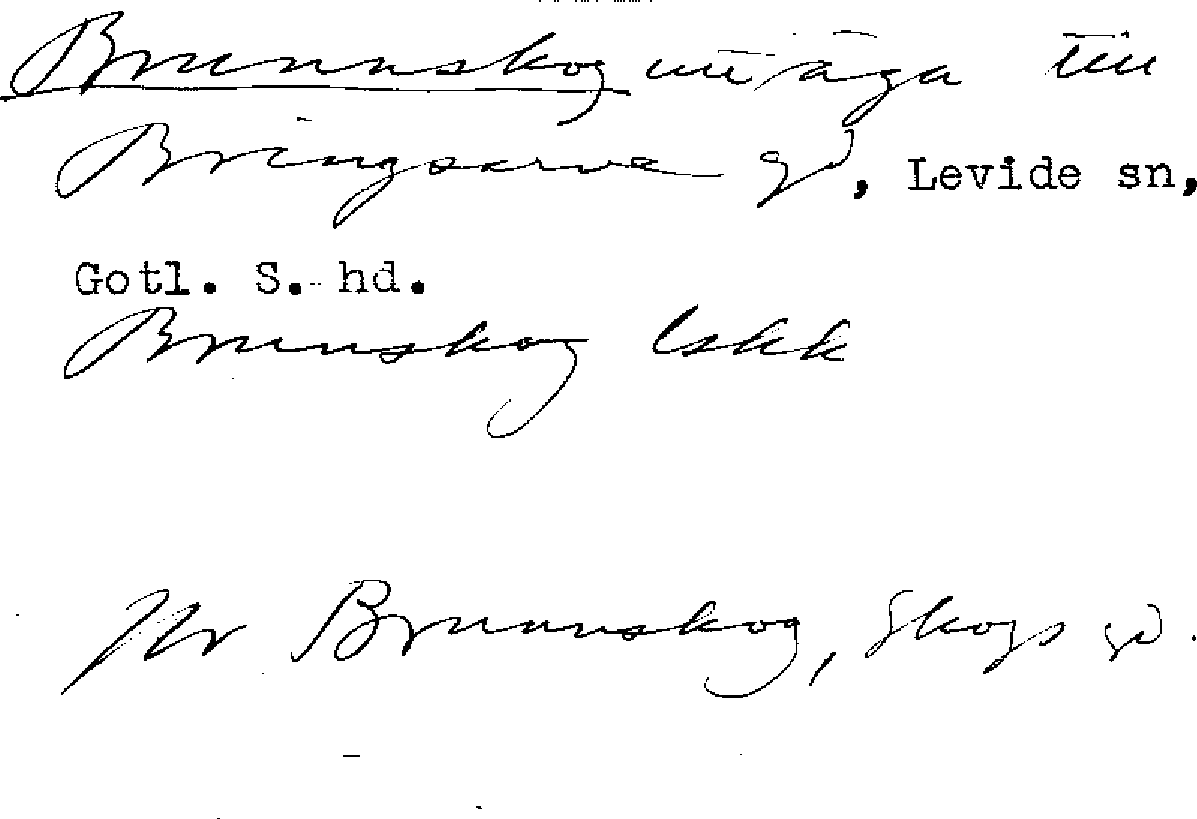 Brunnskog utäga till
Bringsarve gd, Levide sn,
Gotl. S. hd.
Brunskog lskk
Jfr Brunnskog, Skogs gd.